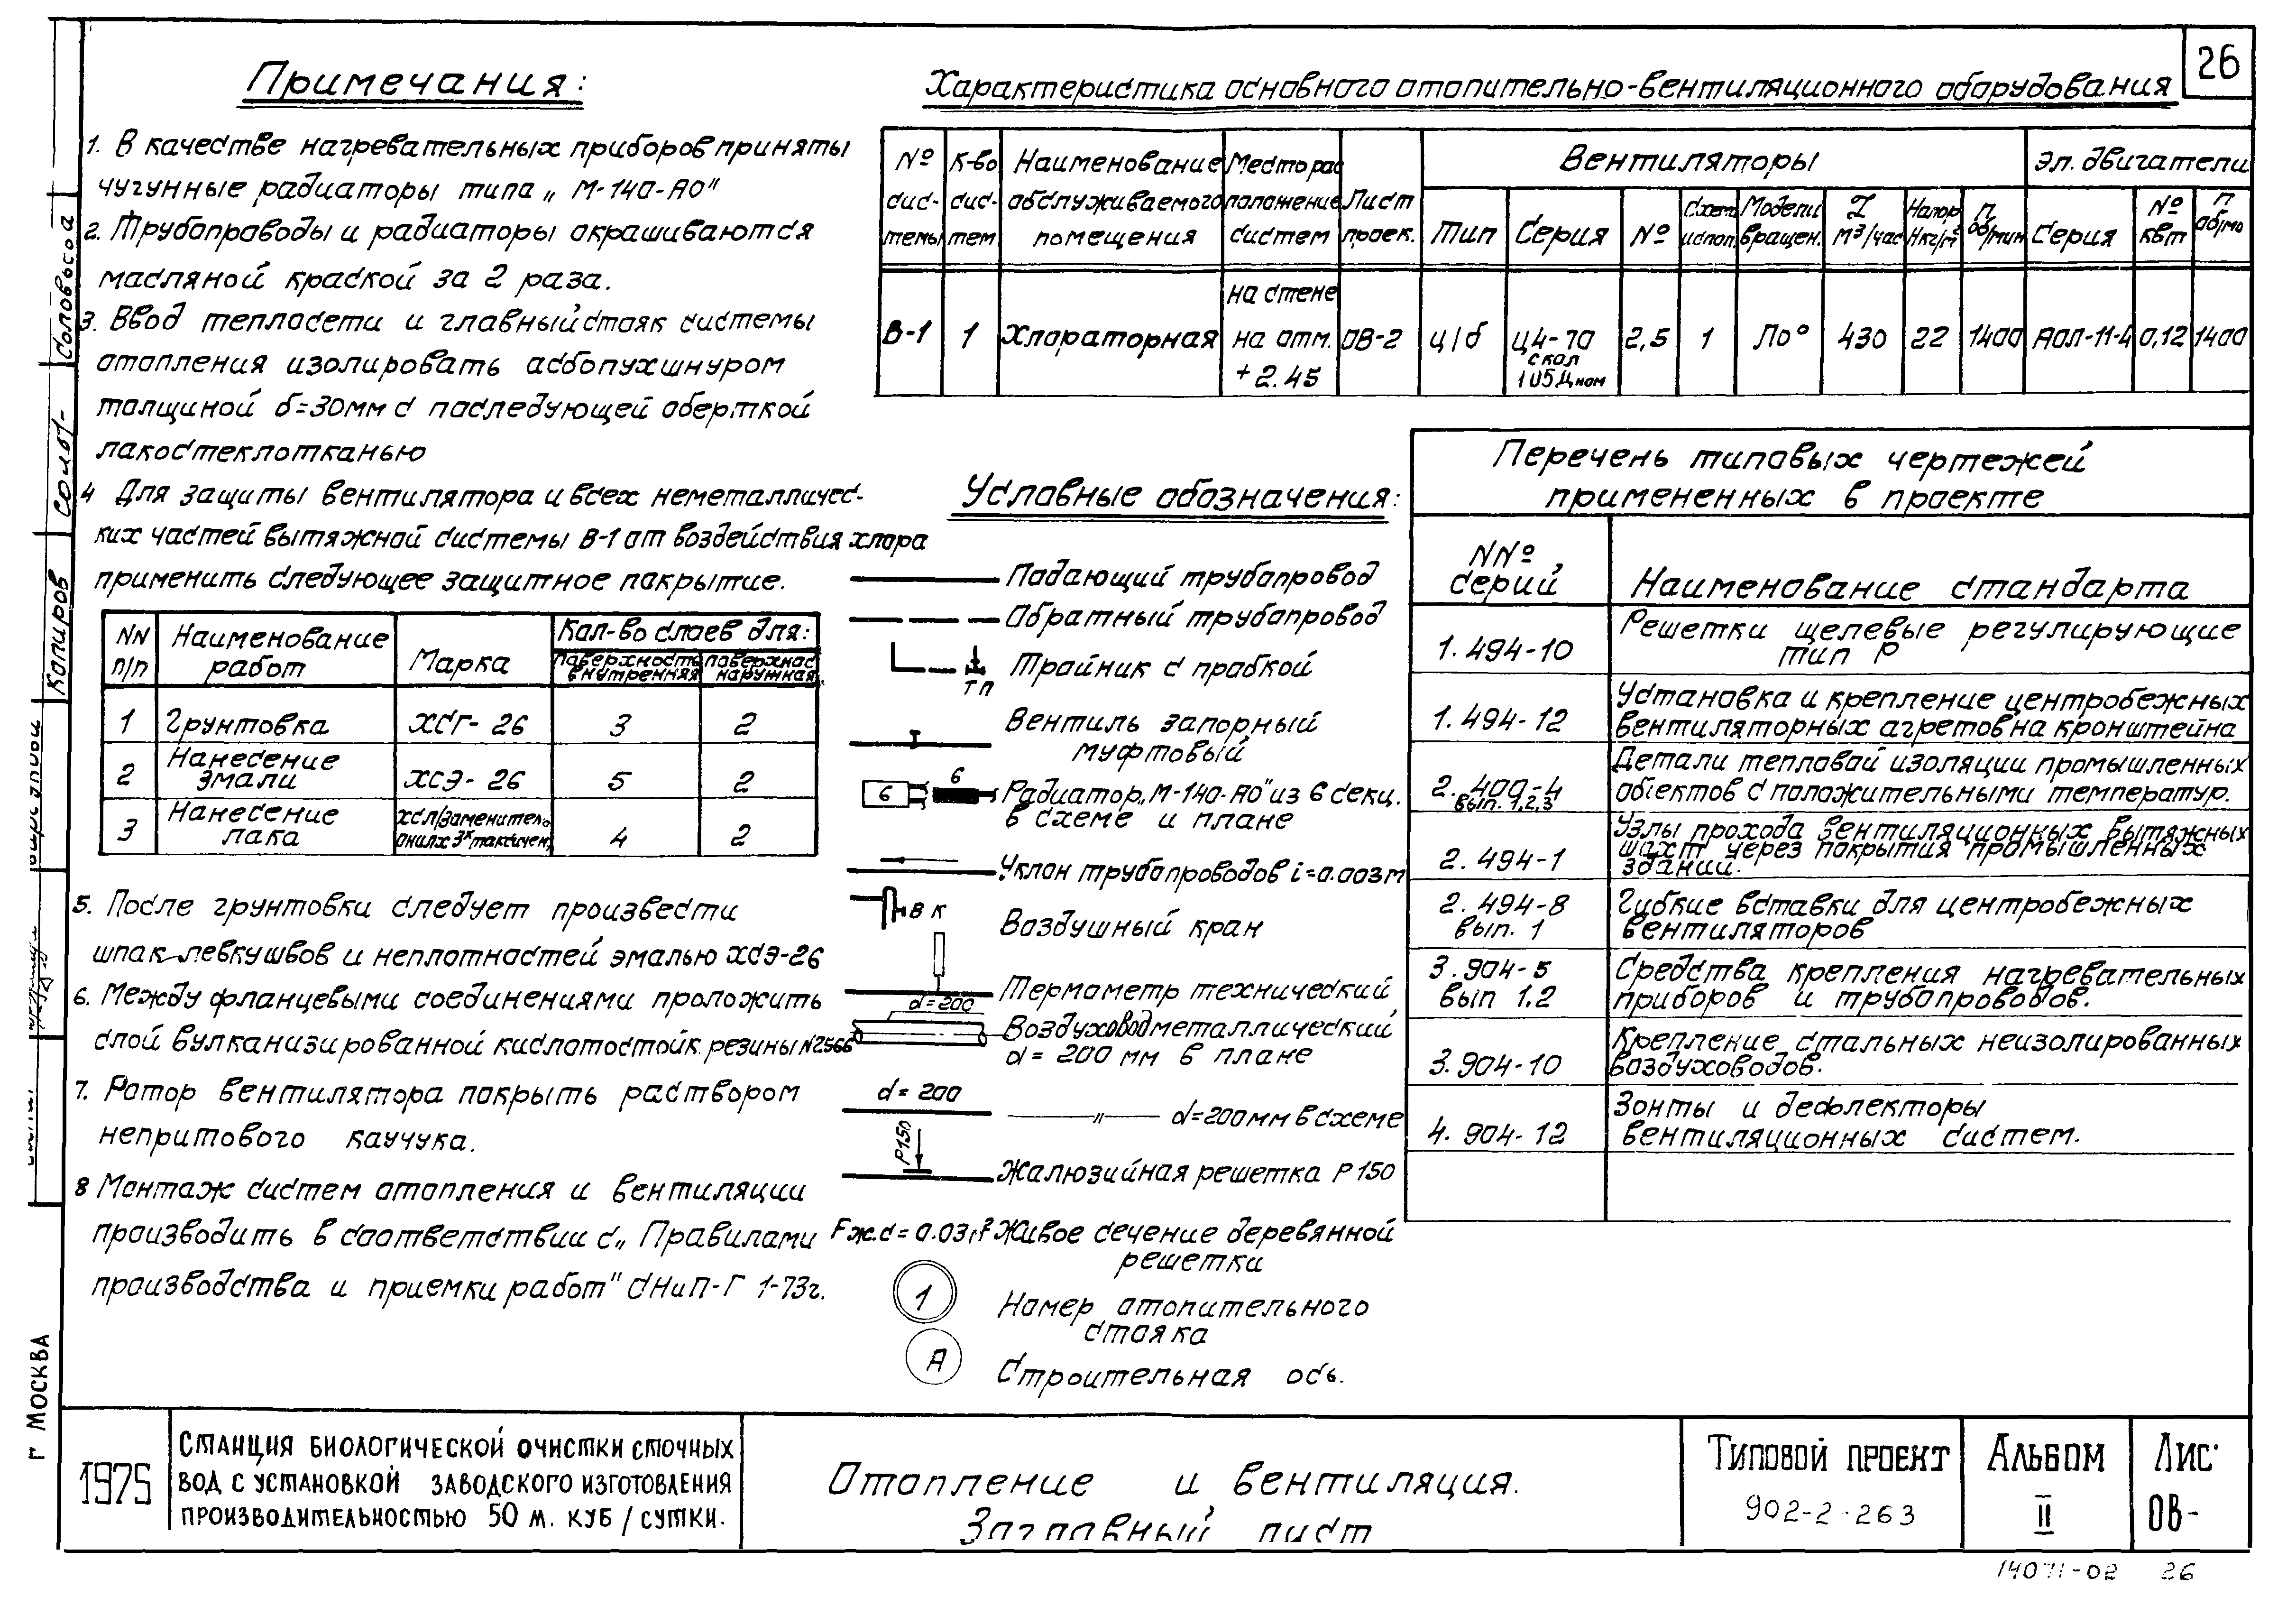 26
Примечания:
1. В качестве нагревательных приборов приняты
чугунные радиаторы типа „М-140-АО"
2. Трубопроводы и радиаторы окрашиваются
масляной краской за 2 раза.
3. Ввод теплосети и главный стояк системы
отопления изолировать асбопухшнуром
толщиной δ=30мм с последующей оберткой
лакостеклотканью
4 Для защиты вентилятора и всех неметалличес-
ких частей вытяжной системы В-1 от воздействия хлора
применить следующее защитное покрытие.
NN п/п
Наименование работ
Марка
Кол-во слоев для:
Поверхность внутренняя
поверхнос наружная
1 Грунтовка ХСГ-26 3 2
2 Нанесение эмали ХСЭ-26 5 2
3 Нанесение лака 4 2
5. После грунтовки следует произвести
шпаклевку швов и неплотностей эмалью ХСЭ-26
6. Между фланцевыми соединениями проложить
слой вулканизированной кислотостойк. резины N2566
7. Ротор вентилятора покрыть раствором
непритового каучука.
8 Монтаж систем отопления и вентиляции
производить в соответствии с „Правилами
производства и приемки работ" СНиП-Г 1-73г.
Характеристика основного отопительно-вентиляционного оборудования
№ сис-темы
К-во сис-тем
Наименование обслуживаемого помещения
Место рас положение систем
Лист проек.
Вентиляторы
Тип
Серия
№
Схем. испол.
Модели вращен.
L м³/час
Напор Hкг/м²
n об/мин
эл. двигатели
Серия
№ квт
n об/мо
В-1 1 Хлораторная на стене на отм. +2.45 ОВ-2 ц/б Ц4-70 с кол 105Дном 2,5 1 Ло° 430 22 1400 АОЛ-11-4 0,12 1400
Условные обозначения:
Подающий трубопровод
Обратный трубопровод
ТП
Тройник с пробкой
Вентиль запорный
муфтовый
6
6
Радиатор „М-140-АО" из 6 секц.
в схеме и плане
Уклон трубопроводов i=0.003 м
ВК
Воздушный кран
Термометр технический
d=200
Воздуховод металлический
d=200 мм в плане
d=200
—„— d=200мм в схеме
Р150
Жалюзийная решетка Р 150
Живое сечение деревянной
решетки
1
Номер отопительного
стояка
А
Строительная ось.
Перечень типовых чертежей
примененных в проекте
NNº серий
Наименование стандарта
1.494-10 Решетки щелевые регулирующие
тип Р
1.494-12 Установка и крепление центробежных
вентиляторных агретов на кронштейна
2.400-4 вып. 1,2,3 Детали тепловой изоляции промышленных
обіектов с положительными температур.
2.494-1 Узлы прохода вентиляционных вытяжных
шахт через покрытия промышленных
зданий.
2.494-8 вып. 1 Гибкие вставки для центробежных
вентиляторов
3.904-5 вып 1.2 Средства крепления нагревательных
приборов и трубопроводов.
3.904-10 Крепление стальных неизолированных
воздуховодов.
4.904-12 Зонты и дефлекторы
вентиляционных систем.
Соловьева
Копиров
г Москва
1975
Станция биологической очистки сточных
вод с установкой заводского изготовления
производительностью 50 м. куб/сутки.
Отопление и вентиляция.
Заглавный лист
Типовой проект
902-2-263
Альбом
II
Лис
ОВ-
14071-02 26